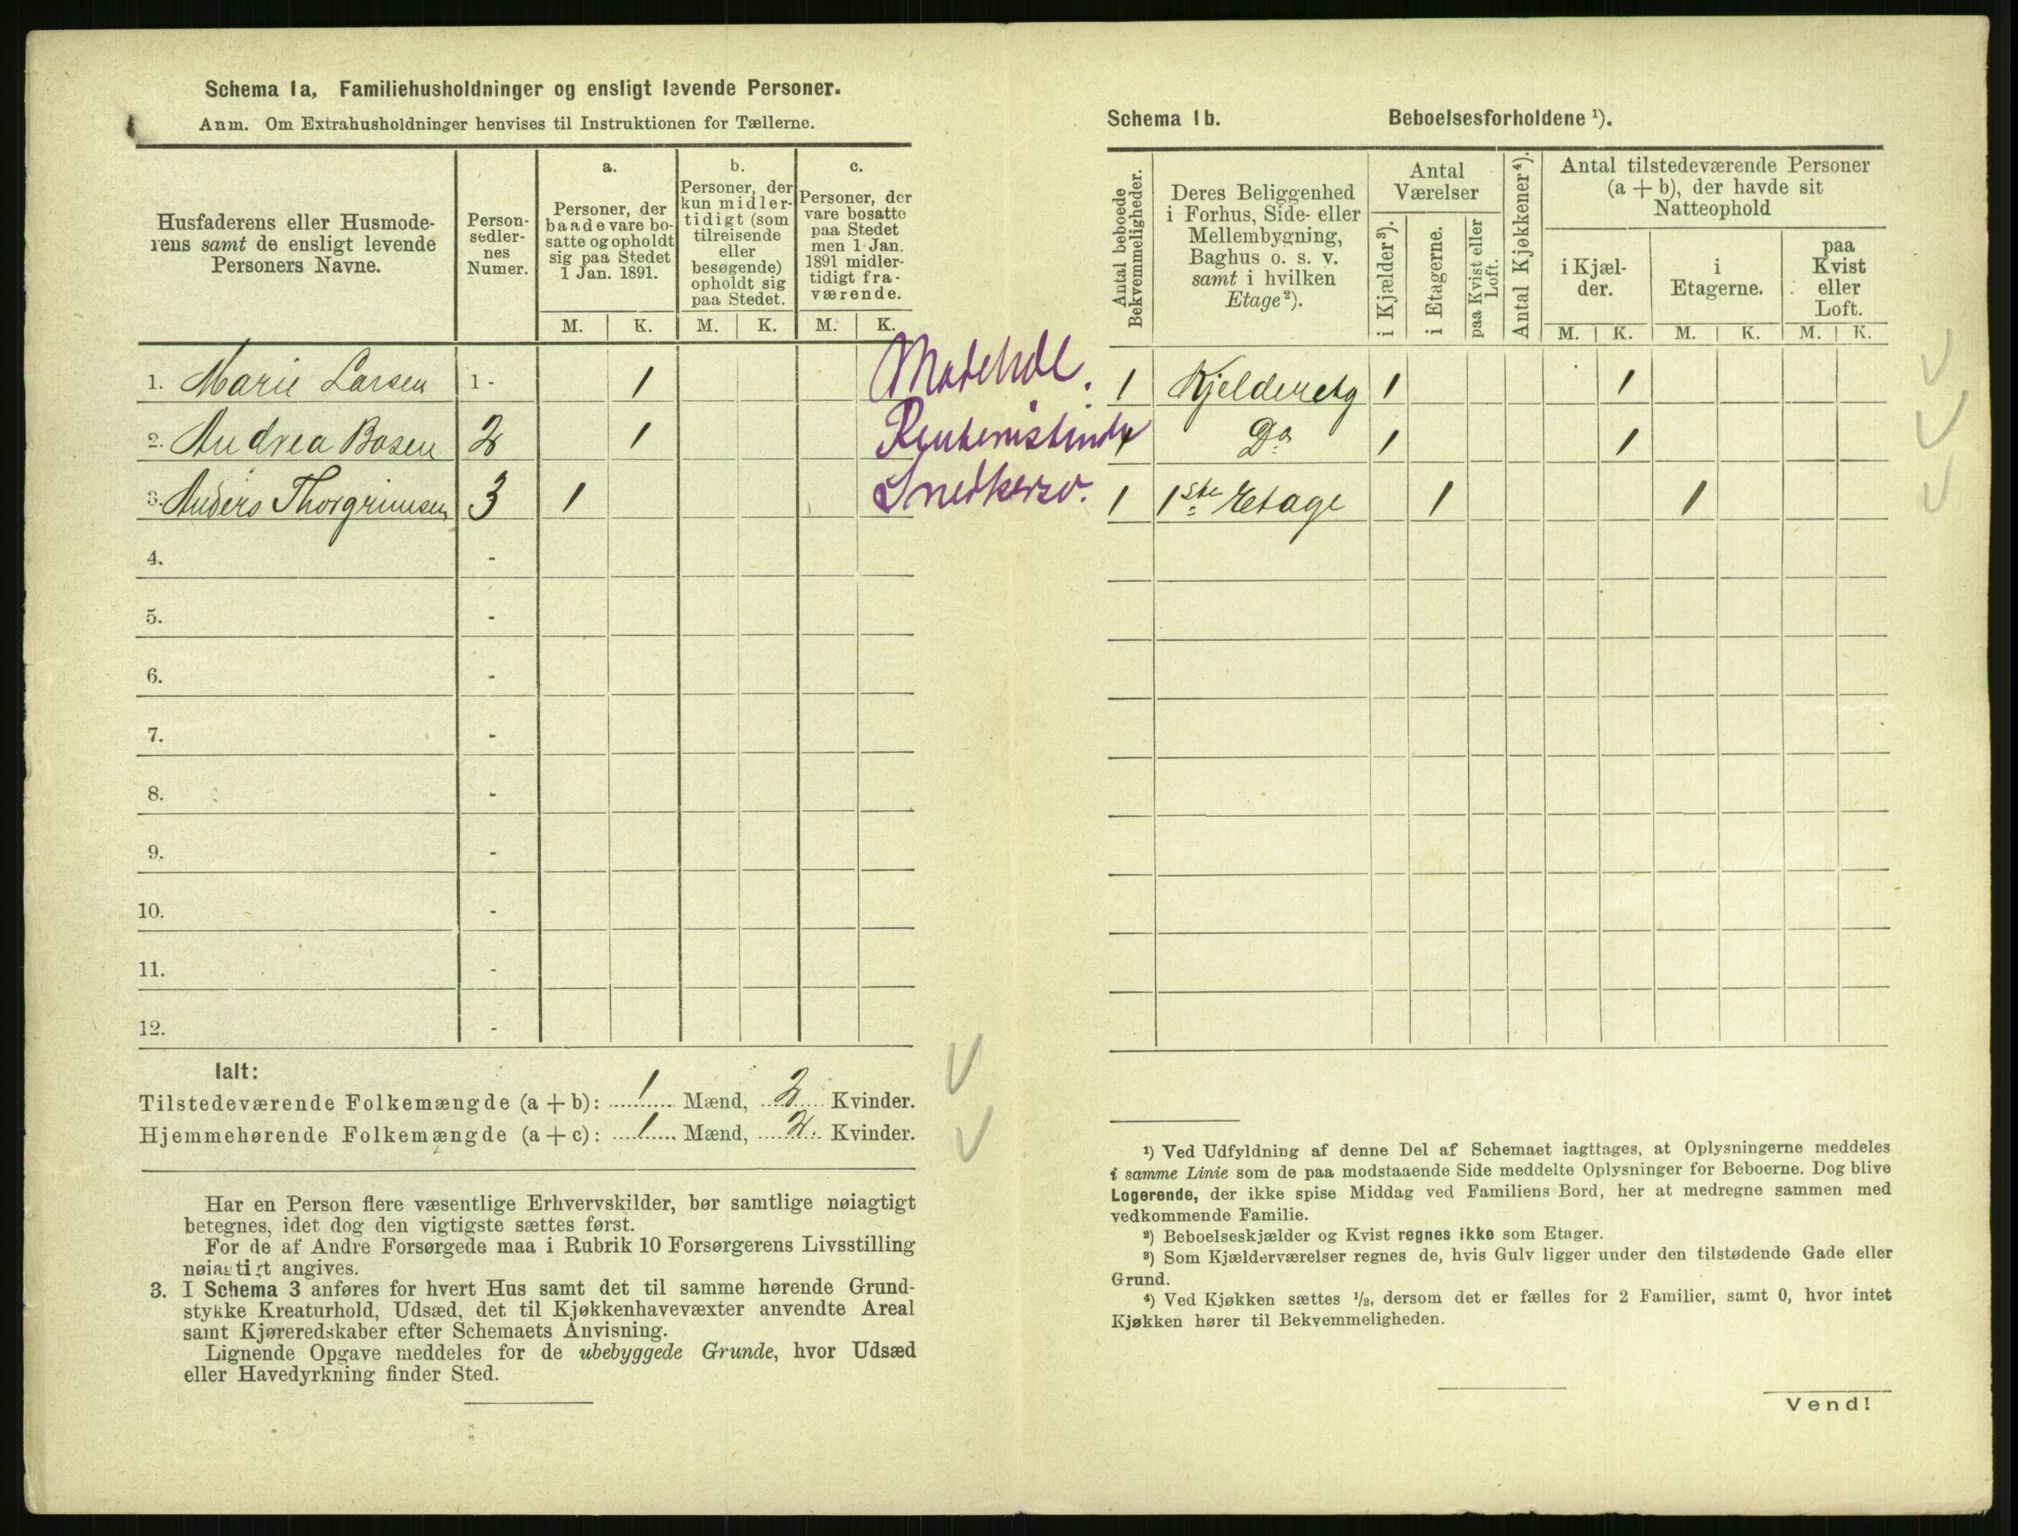 Schema 1a, Familiehusholdninger og ensligt levende Personer.
Anm. Om Extrahusholdninger henvises til Instruktionen for Tællerne.
Husfaderens eller Husmode-
rens samt de ensligt levende
Personers Navne.
Person-
sedler-
nes
Numer.
a.
Personer, der
baade vare bo-
satte og opholdt
sig paa Stedet
1 Jan. 1891.
b.
Personer, der
kun midler-
tidigt (som
tilreisende
eller
besøgende)
opholdt sig
paa Stedet.
c.
Personer, der
vare bosatte
paa Stedet
men 1 Jan.
1891 midler-
tidigt fra-
værende.
M. K. M. K. M. K.
1. Marie Larsen 1 - 1
2. Andrea Bosen 2 1 Rentenistinde
3. Anders Thorgrimsen 3 1 Snedkersv.
4. -
5. -
6. -
7. -
8. -
9. -
10. -
11. -
12. -
Ialt:
Tilstedeværende Folkemængde (a + b): 1 Mænd, 2 Kvinder.
Hjemmehørende Folkemængde (a + c): 1 Mænd, 2 Kvinder.
Har en Person flere væsentlige Erhvervskilder, bør samtlige nøiagtigt
betegnes, idet dog den vigtigste sættes først.
For de af Andre Forsørgede maa i Rubrik 10 Forsørgerens Livsstilling
nøiagtigt angives.
3. I Schema 3 anføres for hvert Hus samt det til samme hørende Grund-
stykke Kreaturhold, Udsæd, det til Kjøkkenhavevæxter anvendte Areal
samt Kjøreredskaber efter Schemaets Anvisning.
Lignende Opgave meddeles for de ubebyggede Grunde, hvor Udsæd
eller Havedyrkning finder Sted.
Schema 1b. Beboelsesforholdene ¹).
Antal beboede
Bekvemmeligheder.
Deres Beliggenhed
i Forhus, Side- eller
Mellembygning,
Baghus o. s. v.
samt i hvilken
Etage ²).
Antal
Værelser
i Kjælder ³).
i Etagerne.
paa Kvist eller
Loft.
Antal Kjøkkener ⁴).
Antal tilstedeværende Personer
(a + b), der havde sit
Natteophold
i Kjæl-
der.
i
Etagerne.
paa
Kvist
eller
Loft.
M. K. M. K. M. K.
1 Kjelderetg 1 1
1 Do 1 1
1 1ste Etage 1 1
¹) Ved Udfyldning af denne Del af Schemaet iagttages, at Oplysningerne meddeles
i samme Linie som de paa modstaaende Side meddelte Oplysninger for Beboerne. Dog blive
Logerende, der ikke spise Middag ved Familiens Bord, her at medregne sammen med
vedkommende Familie.
²) Beboelseskjælder og Kvist regnes ikke som Etager.
³) Som Kjælderværelser regnes de, hvis Gulv ligger under den tilstødende Gade eller
Grund.
⁴) Ved Kjøkken sættes ½, dersom det er fælles for 2 Familier, samt 0, hvor intet
Kjøkken hører til Bekvemmeligheden.
Vend!